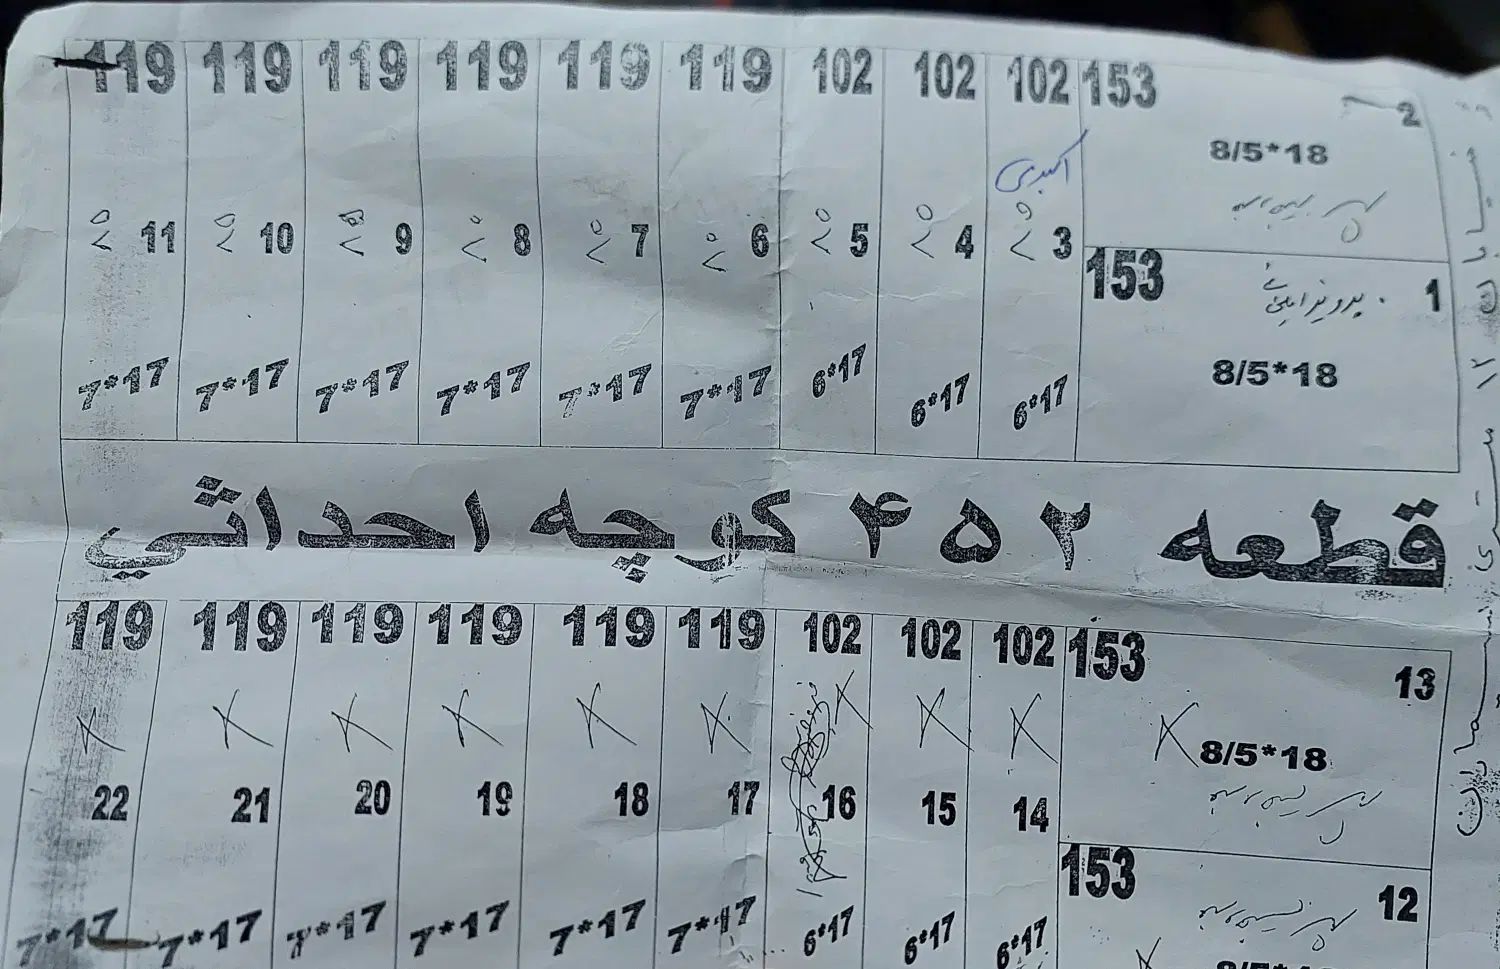 119 119 119 119 119 119 102 102 102 153
2
8/5*18
اکبری
11 10 9 8 7 6 5 4 3
۸۵ ۸۵ ۸۵ ۸۵ ۸۵ ۸۵ ۸۵ ۸۵ ۸۵
153
1
8/5*18
7*17 7*17 7*17 7*17 7*17 7*17 6*17 6*17 6*17
قطعه ۲ ۵ ۴ کوچه احداثي
119 119 119 119 119 119 102 102 102 153
13
8/5*18
22 21 20 19 18 17 16 15 14
153
12
7*17 7*17 7*17 7*17 7*17 7*17 6*17 6*17 6*17
8/5*18
خیابان ۱۲ متری